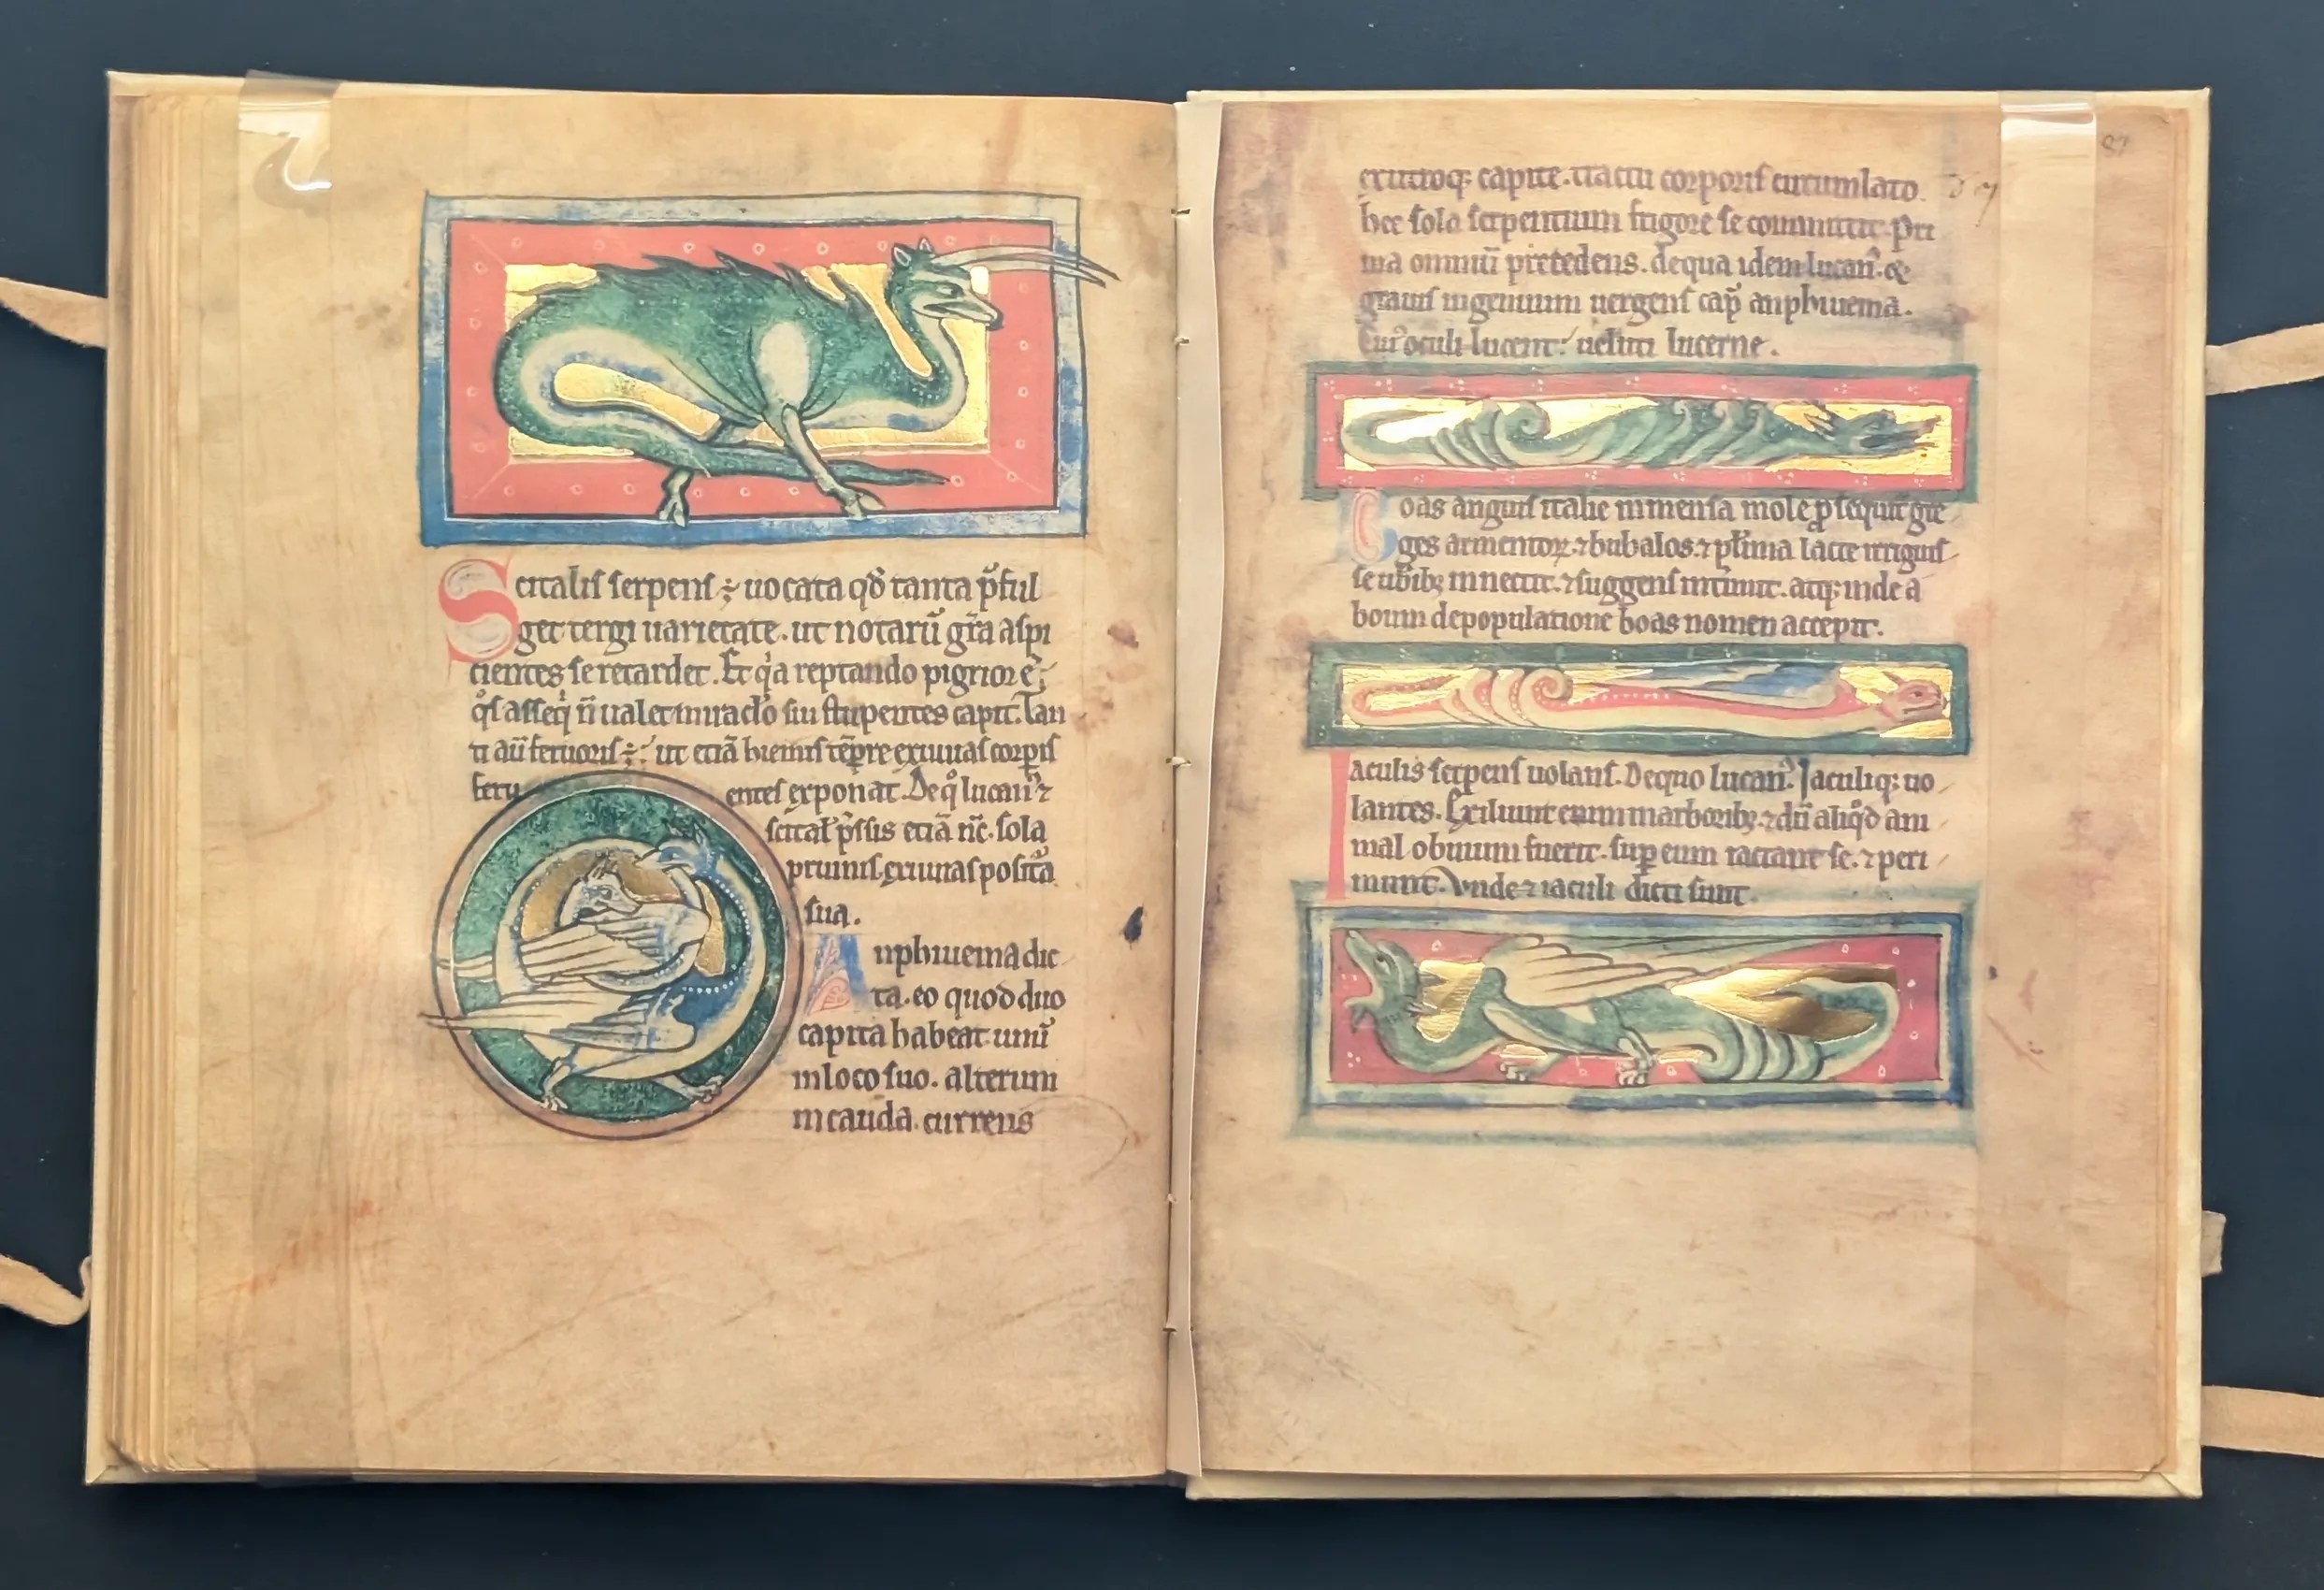 Scitalis serpens ÷ uocata qđ tanta p̃ful
get tergi uarietate. ut notarũ gr̃a aspi
cientes se retardet. Et qͥa reptando pigrior ẽ;
qͦs asseqͥ ñ ualet miraclo sui stupentes capit. Tan
ti aũ feruoris ÷ ut etiã hiemis tẽpre exuuias corpis
feru
entes exponat. De qͦ lucanꝰ ⁊
scital̃ p̃ssis etiã nc̃. sola
pruinis. exuuias posita
sua.
Anphiuema dic
ta. eo quod duo
capita habeat. unũ
in loco suo. alterum
in cauda. currens
87
exutroq; capite. tractu corporis circumlato.
hec sola serpentium frigore se committit. Pri
ma omniũ p̃cedens. de qua idem lucanꝰ. &
grauis in geminum uergens cap̃ anphiuema.
Cuiꝰ oculi lucent: ueluti lucerne.
Boas anguis italie inmensa mole ꝓsequit̃ gre
ges armentoꝝ. ⁊ bubalos. ⁊ pl̃ima lacte irriguis
se ub̃ibꝫ innectit. ⁊ suggens int̃imit. atq; inde a
boum depopulatione boas nomen accepit.
Iaculis serpens uolans. De quo lucanꝰ. Jaculiq; uo
lantes. Exiliunt enim in arboribꝫ. ⁊ dũ aliqͦd ani
mal obuium fuerit. suꝑ eum iactant se. ⁊ peri
munt. Vnde ⁊ iaculi dicti sunt.